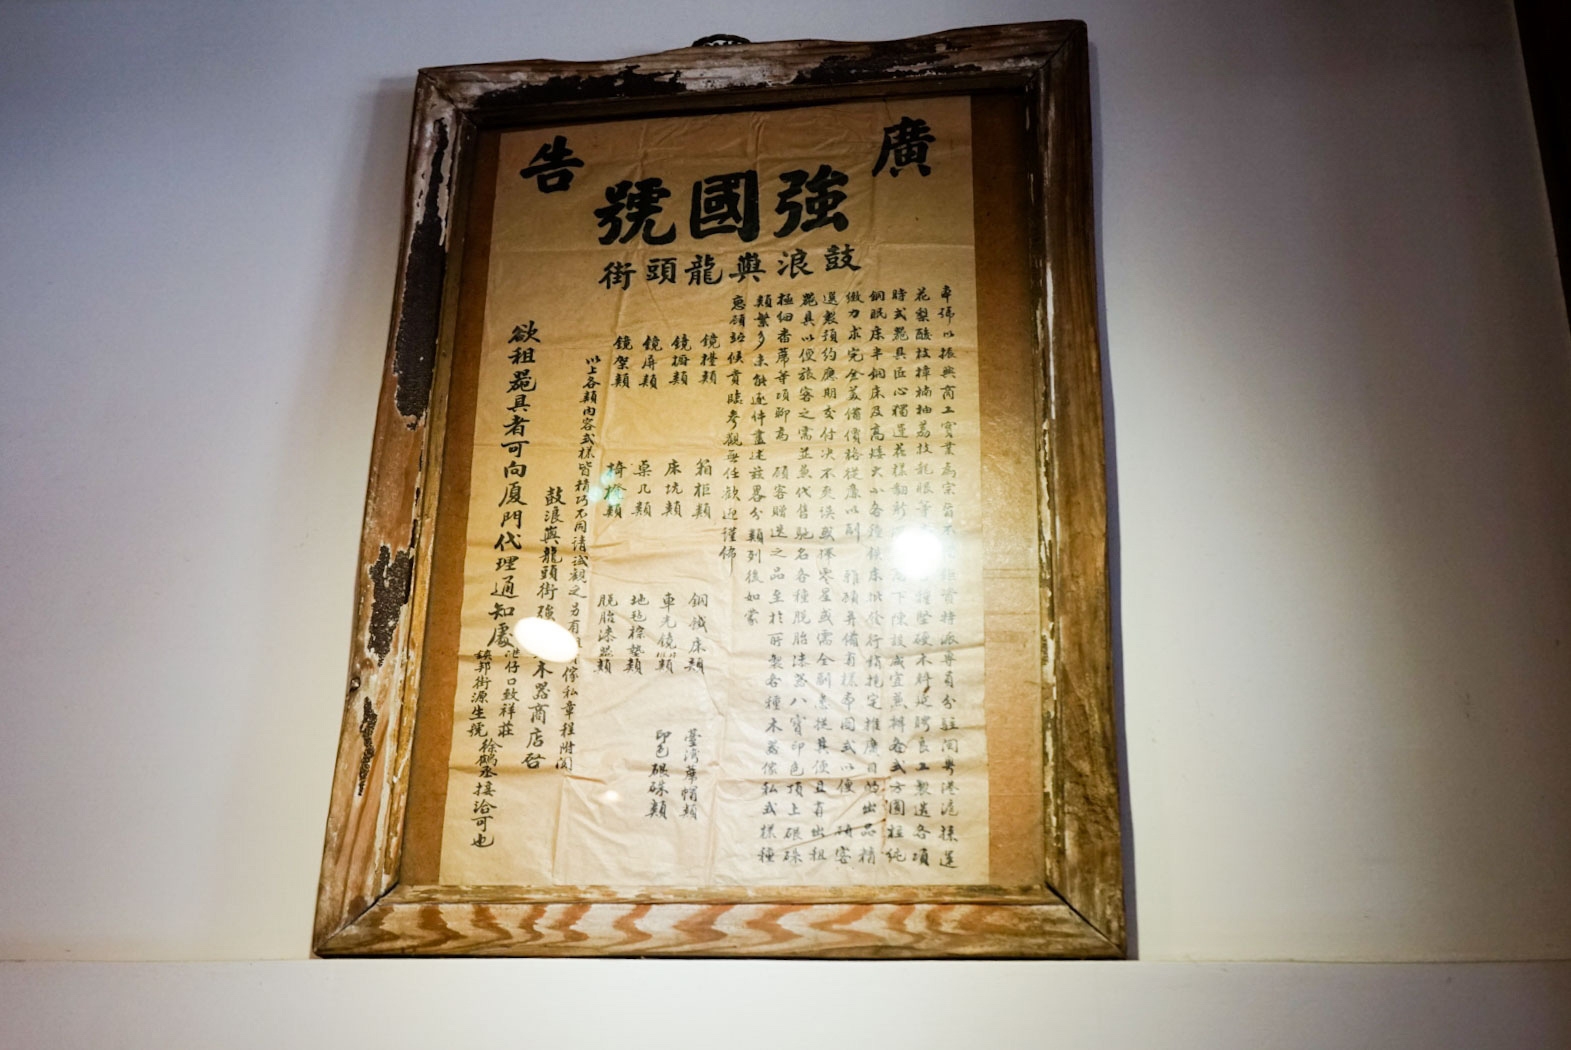 廣告
強國號
鼓浪嶼龍頭街
本號以振興商工實業為宗旨不 特派專員分駐閩粵港滬採運
花梨酸枝樟楠柚荔枝龍眼等 種堅硬木料延聘良工製造各項
時式器具匠心獨運花樣翻新 下陳設咸宜兼辦各式方圓柱純
銅眠床半銅床及高矮大小各種鐵床批發行銷抱定推廣目的出品精
緻力求完全美備價格從廉以副 雅頌并備有樣本圖式以便 顧客
選製預約應期交付決不更誤或擇零星或需全副盡堪具便且有出租
器具以便旅客之需並兼代售馳名各種脫胎漆器八寶印色頂上銀硃
極細香蓆等項聊為 顧客贈送之品至於所製各種木器傢私式樣種
類繁多未能逐件盡述茲畧分類列後如蒙
惠顧 候貴臨參觀無任歡迎謹佈
鏡檯類 箱柜類 銅鐵床類 臺灣草帽類
鏡櫥類 床坑類 車光鏡類 印色銀硃類
鏡屏類 桌几類 地毯棕墊類
鏡架類 椅 類 脫胎漆器類
以上各類內容式樣皆精巧不同請試觀之另有 傢私章程附閱
鼓浪嶼龍頭街強 木器商店啓
欲租器具者可向廈門代理通知處
仔口致祥莊
邦街源生號
徐鶴丞接洽可也